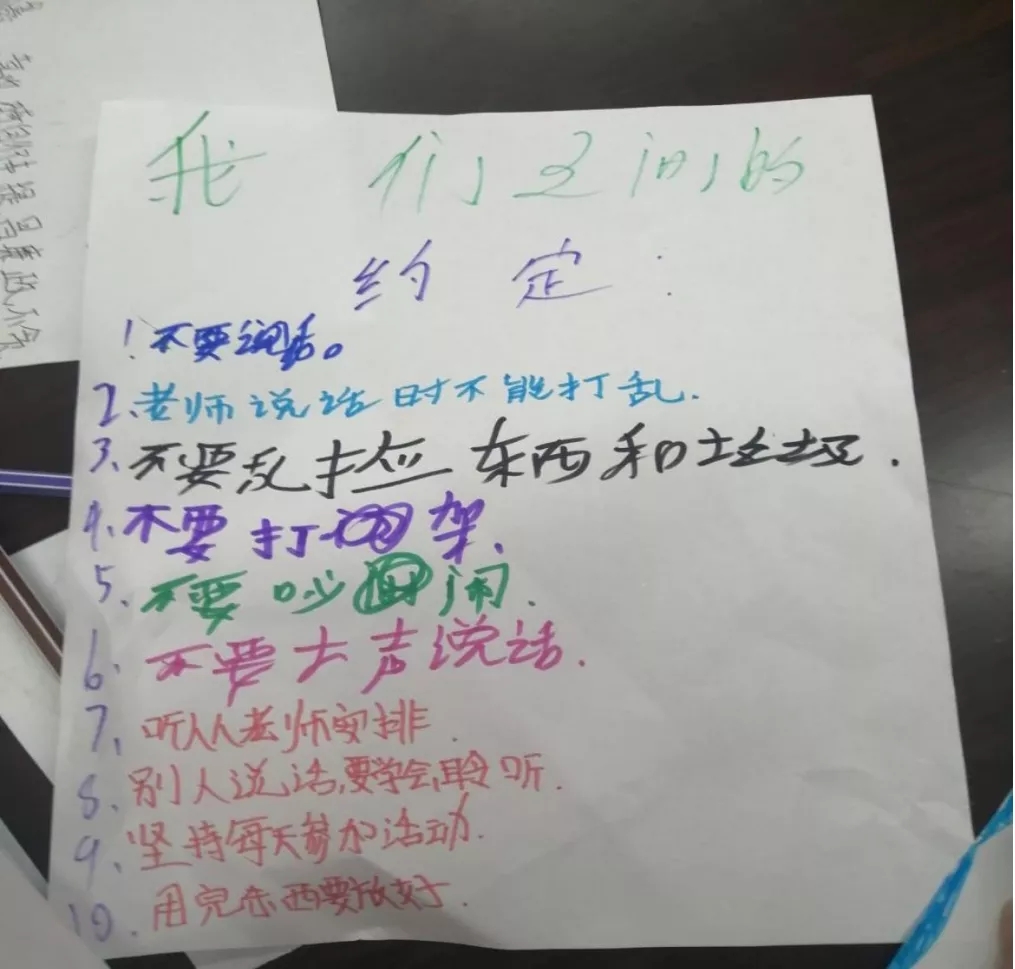 我们之间的
约定:
1不要说话。
2.老师说话时不能打乱.
3、不要乱捡东西和垃圾.
4.不要打架、
5、不要吵闹.
6.不要大声说话.
7、听从老师安排.
8、别人说话,要学会聆听.
9、坚持每天参加活动.
10.用完东西要放好.